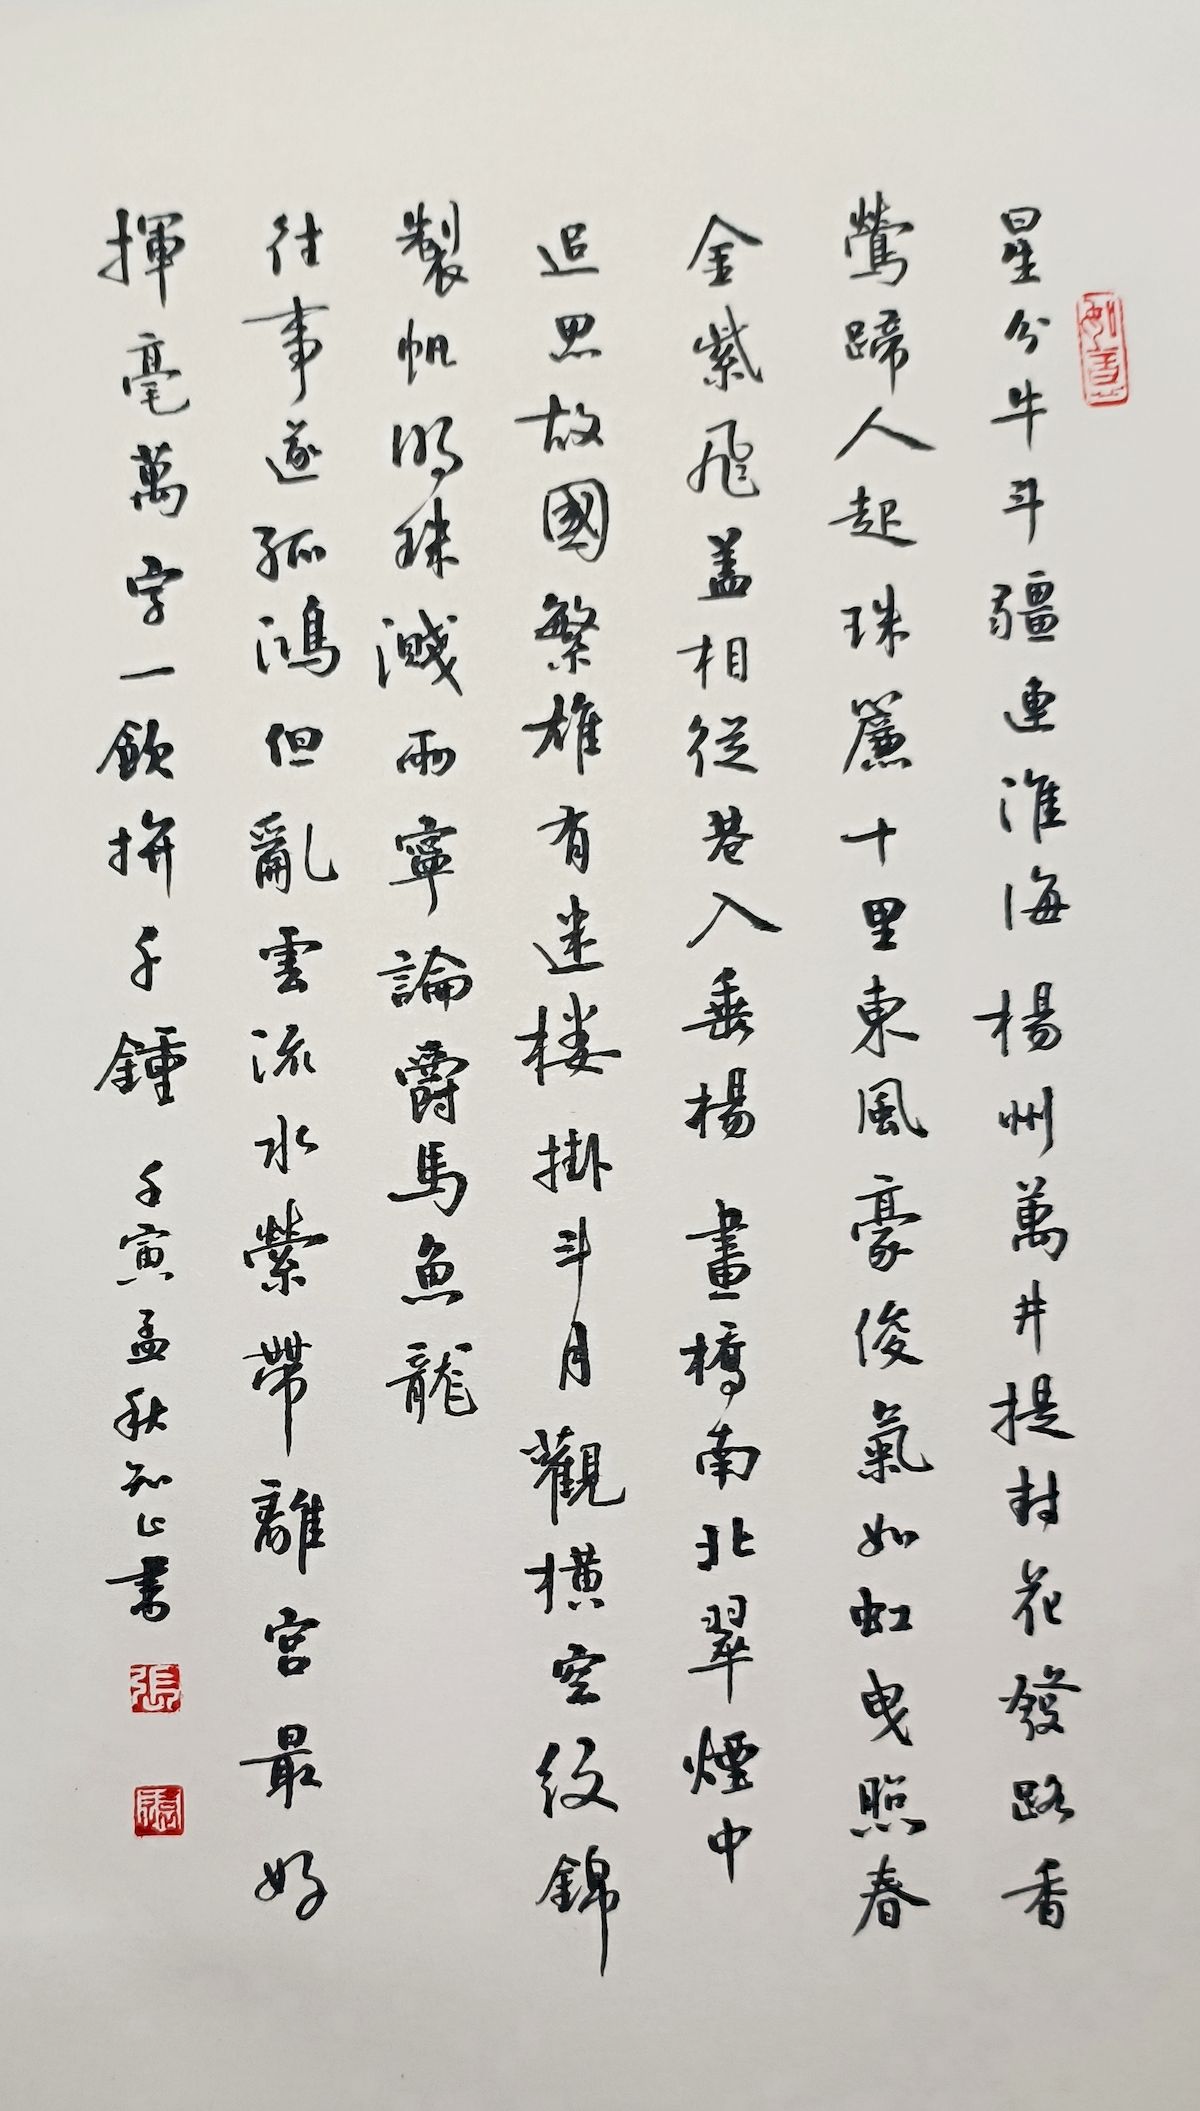 星分牛斗疆連淮海楊州萬井提封花發路香
鶯蹄人起珠簾十里東風豪俊氣如虹曳照春
金紫飛蓋相從巷入垂楊畫橋南北翠煙中
追思故國繁雄有迷楼掛斗月觀橫空紋錦
製帆明珠濺雨寧論爵馬魚龍
往事逐孤鴻但亂雲流水縈帶離宮最好
揮毫萬字一飲拚千鍾壬寅孟秋知止書
張